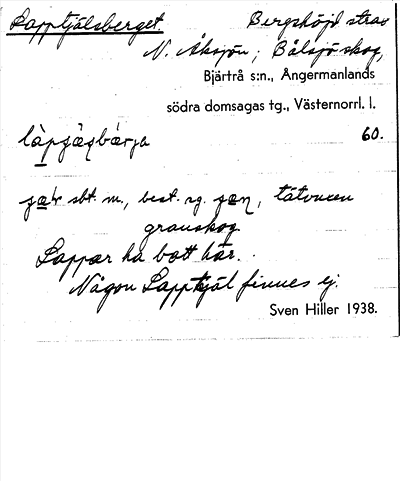 Lapptjälsberget. Bergshöjd strax
N. Åksjön, Bålsjö skog,
Bjärtrå s:n., Ångermanlands
södra domsagas tg., Västernorrl. l.
60.
sbt. m., best. sg. tätvuxen
granskog
Lappar ha bott här.
Någon Lapptjäl finnes ej.
Sven Hiller 1938.